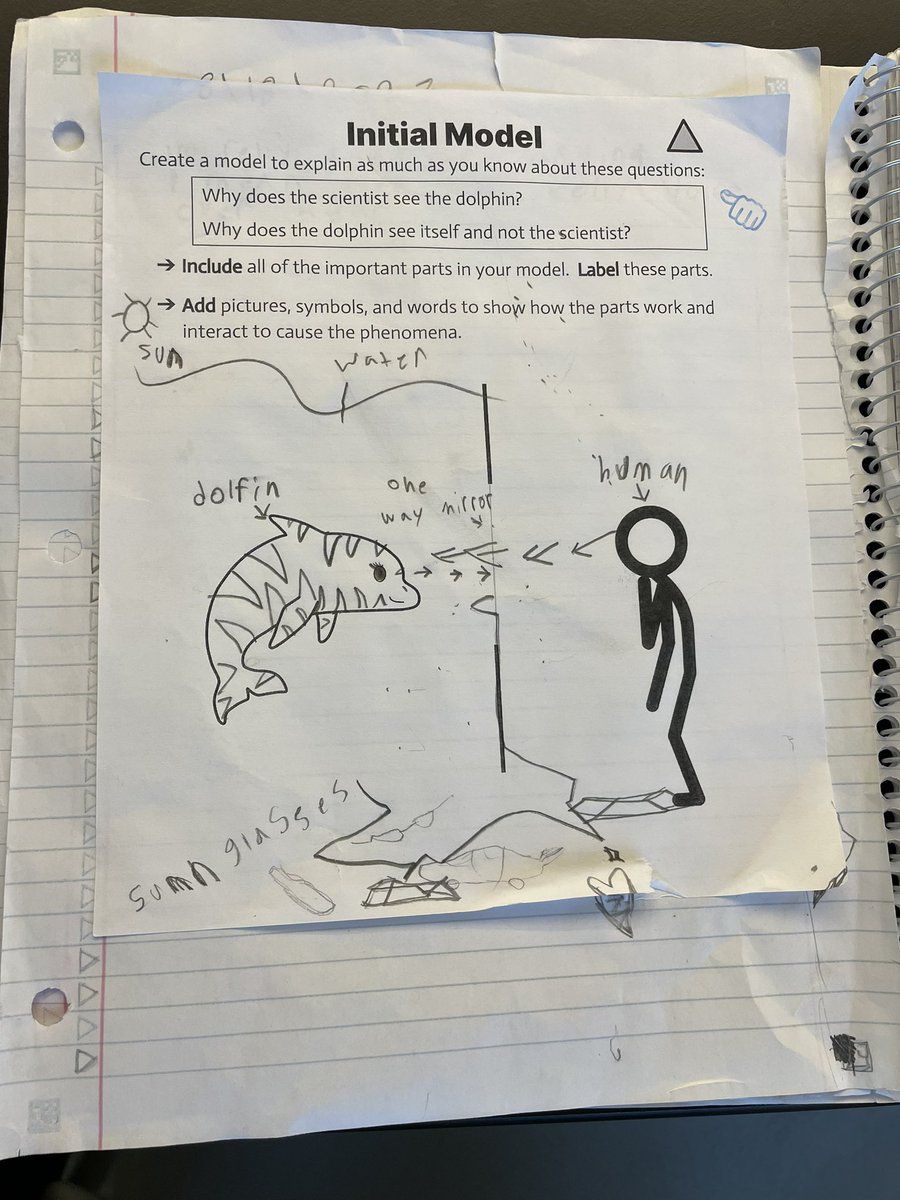 Initial Model
Create a model to explain as much as you know about these questions:
Why does the scientist see the dolphin?
Why does the dolphin see itself and not the scientist?
→ Include all of the important parts in your model. Label these parts.
→ Add pictures, symbols, and words to show how the parts work and
interact to cause the phenomena.
sun
water
human
dolfin
one
way mirror
sumn glasses